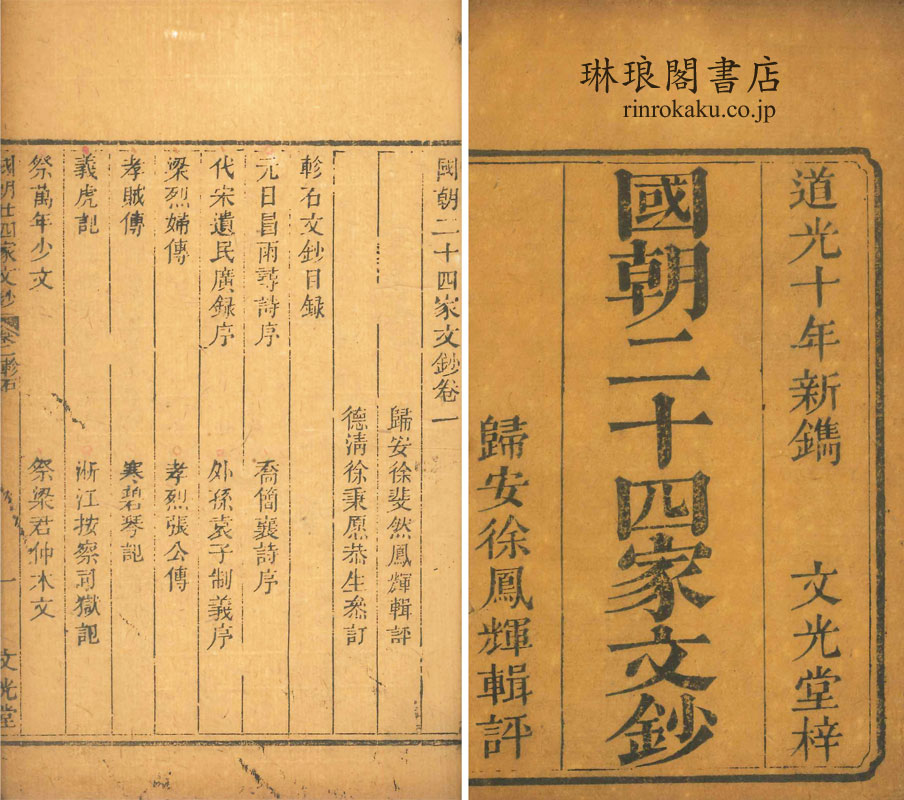 琳琅閣書店
rinrokaku.co.jp
道光十年新鐫 文光堂梓
國朝二十四家文鈔
歸安徐鳳輝輯評
國朝二十四家文鈔卷一
歸安徐斐然鳳輝輯評
德清徐秉愿恭生叅訂
軫石文鈔目録
元日冒雨尋詩序 喬簡襄詩序
代宋遺民廣録序 外孫袁子制義序
梁烈婦傳 孝烈張公傳
孝賊傳 寒碧琴記
義虎記 浙江按察司獄記
祭萬年少文 祭梁君仲木文
國朝廿四家文鈔 卷一軫石 一 文光堂